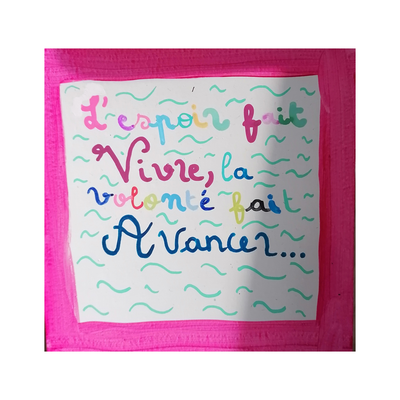 L'espoir fait
Vivre, la
volonté fait
Avancer...